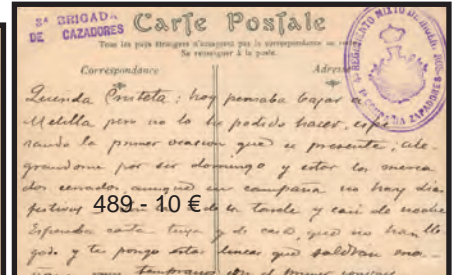 3ª BRIGADA
DE CAZADORES
Carte Postale
Tous les pays étrangers n'acceptent pas la correspondance au recto
Se renseigner à la poste.
Correspondance
Adresse
4º REGIMIENTO MIXTO DE
COMPAÑIA ZAPADORES
Querida Cristeta: hoy pensaba bajar a
Melilla pero no lo he podido hacer,
rando la primer ocasion que se presente; ale-
grandome por ser domingo y estar los merca
dos cerrados, aunque en campaña no hay dias
festivos
489 - 10 €
de la tarde y casi de noche
carta tuya y de casa, que no han lle
gado y te pongo estas lineas que saldran ma-
temprano con el primer